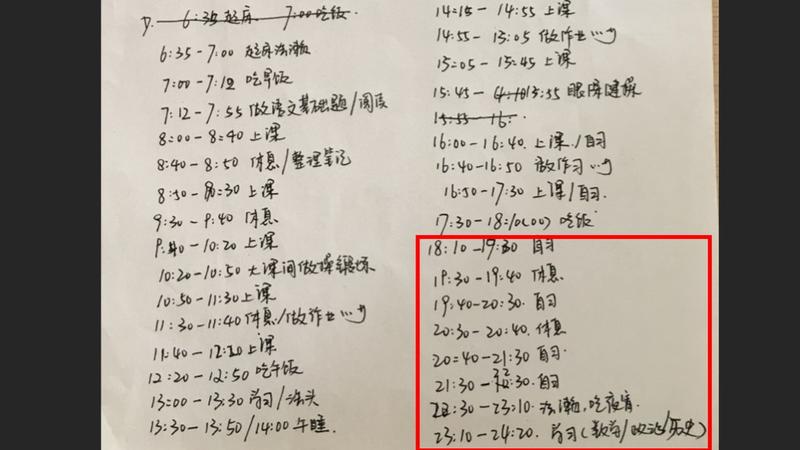 6:35起床 7:00吃饭
6:35-7:00 起床洗漱
7:00-7:12 吃早饭
7:12-7:55 做语文基础题/阅读
8:00-8:40 上课
8:40-8:50 休息/整理笔记
8:50-9:30 上课
9:30-9:40 休息
9:40-10:20 上课
10:20-10:50 大课间做操锻炼
10:50-11:30 上课
11:30-11:40 休息/做作业
11:40-12:20 上课
12:20-12:50 吃午饭
13:00-13:30 学习/洗头
13:30-13:50/14:00 午睡.
14:15- 14:55 上课
14:55-15:05 做作业
15:05-15:45 上课
15:45- 15:55 眼保健操
15:55-16:
16:00-16:40. 上课./自习
16:40-16:50 做作习
16:50-17:30 上课/自习.
17:30-18:10(00) 吃饭.
18:10-19:30 自习
19:30-19:40 休息
19:40-20:30. 自习
20:30-20:40. 休息
20:40-21:30 自习.
21:30-22:30. 自习
22:30-23:10. 洗漱,吃夜宵.
23:10-24:20. 学习(数学/政治/历史)